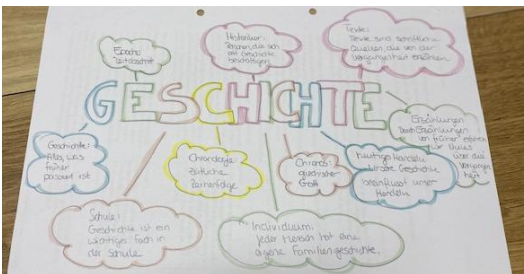 Epoche:
Zeitabschnitt
Historiker:
Personen, die sich
mit Geschichte
beschäftigen
Texte:
Texte sind schriftliche
Quellen, die von der
Vergangenheit erzählen.
GESCHICHTE
Geschichte:
Alles, was
früher
passiert ist
Chronologie
zeitliche
Reihenfolge
Chronos:
griechischer
Gott
heutiges Handeln
unsere Geschichte
beeinflusst unser
Handeln
Erzählungen
Durch Erzählungen
von früher erfahren
wir
über die
Vergangen
heit
Schule:
Geschichte ist ein
wichtiges Fach in
der Schule
Individuum:
jeder Mensch hat eine
eigene Familiengeschichte.